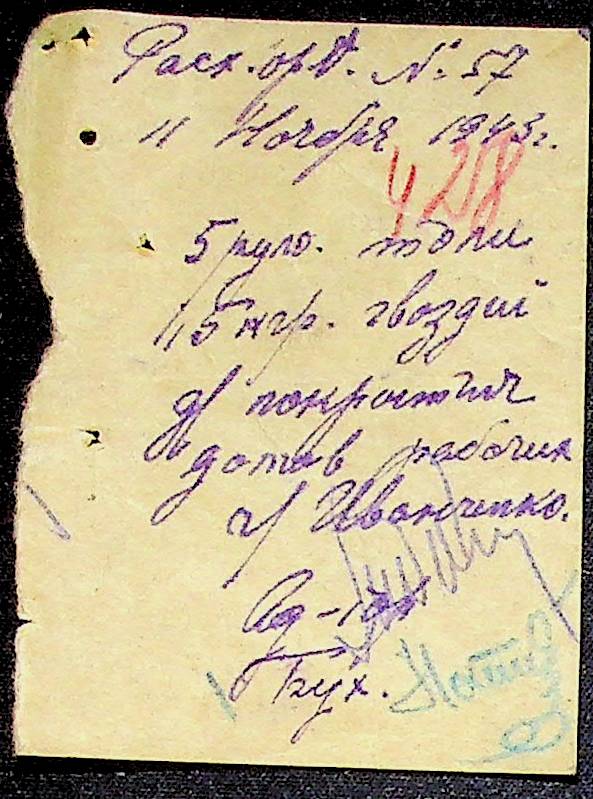 Расх. орд. № 57
11 Ноября 1943 г.
4 258
5 руло. толи
15 кгр. гвоздей
д/ покрытия
домов рабочих
ч/ Иванченко.
Бух.